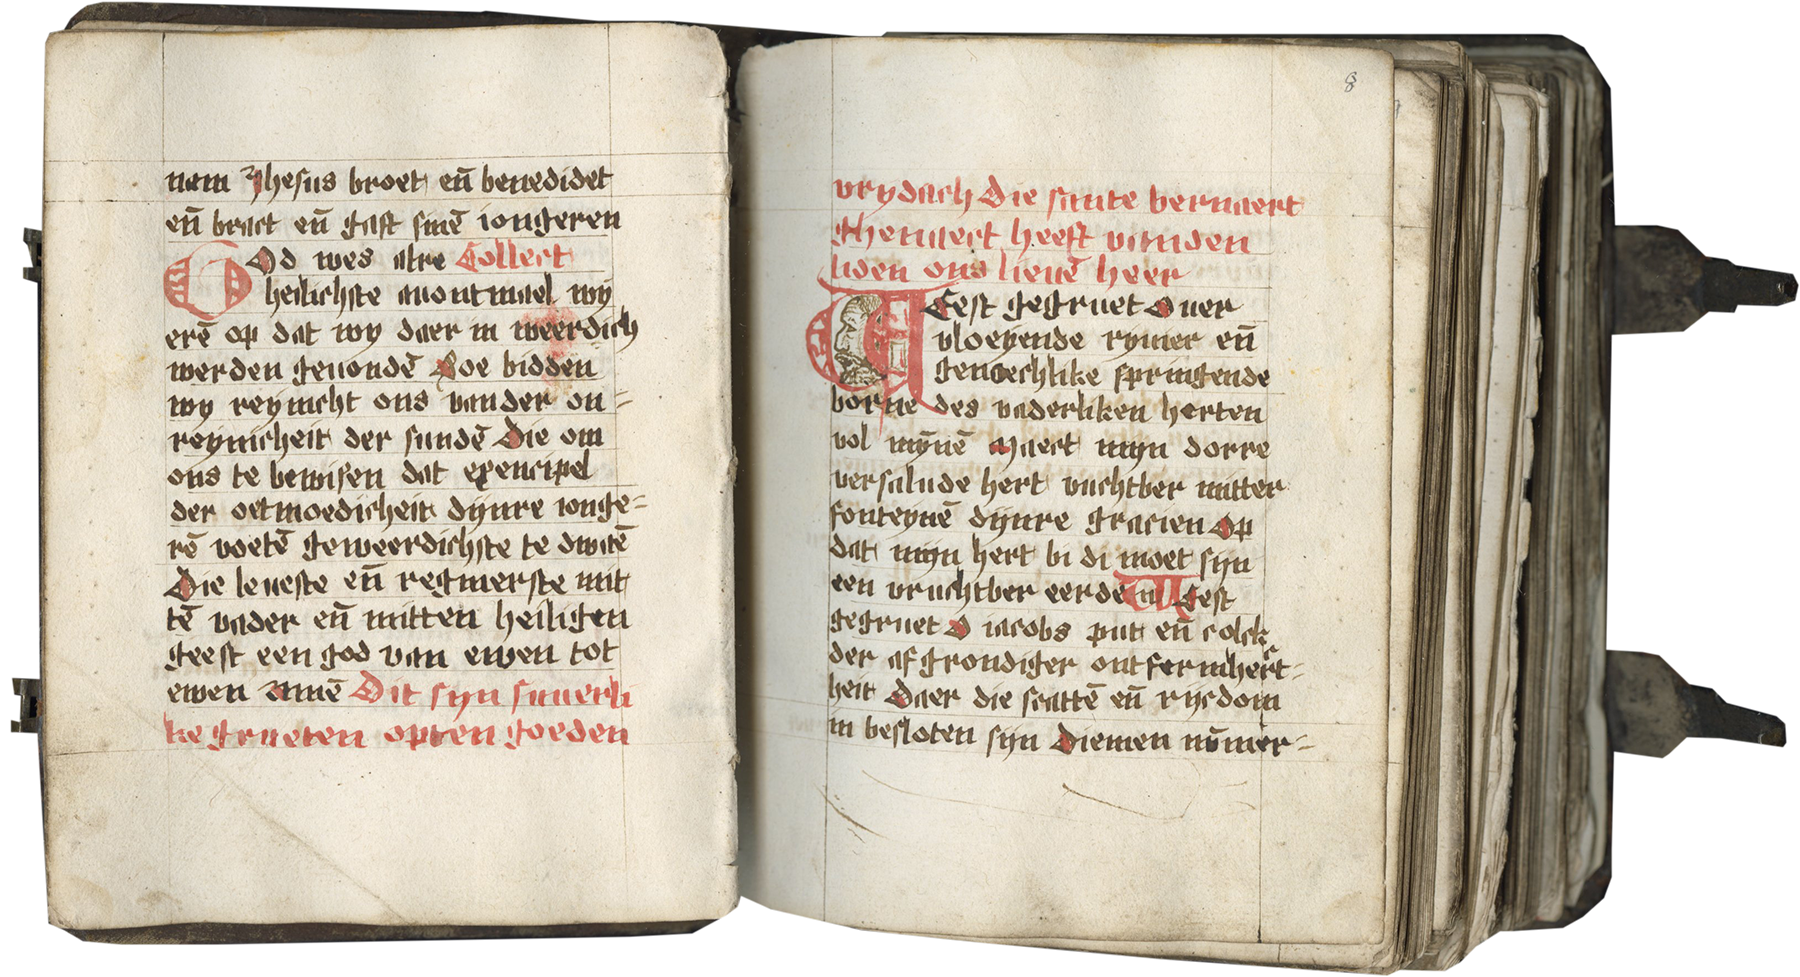 nam Jhesus broet en̄ benedidet
en̄ bract en̄ gaft sinē iongeren
OOd wes alre Collect
heilichste auontmael wy
erē op dat wy daer in weerdich
werden geuondē Soe bidden
wy reynicht ons vander on=
reynicheit der sundē Die om
ons te bewisen dat exencipel
der oetmoedicheit dijnre ionge=
rē voetē geweerdichste te dwaē
Die leueste en̄ regnierste mit
tē vader en̄ mitten heiligen
geest een god van ewen tot
ewen amē Dit sijn suuerli
ke grueten opten goeden
8
vrydach die sante bernaert
ghemaect heeft vanden
liden ons lieuē heer
WEest gegruet Ouer
vloeyende rymer en̄
genoechlike springende
borne des vaderliken herten
vol mȳnē Maect mijn dorre
versalude hert vuchtber mitter
fonteynē dijnre gracien op
dat mijn hert bi di moet sijn
een vruchtber eerde W Eest
gegruet O iacobs put en̄ colck
der afgrondiger ontfermhert=
heit Daer die scattē en̄ rycdom
in besloten sijn Diemen nūmer=